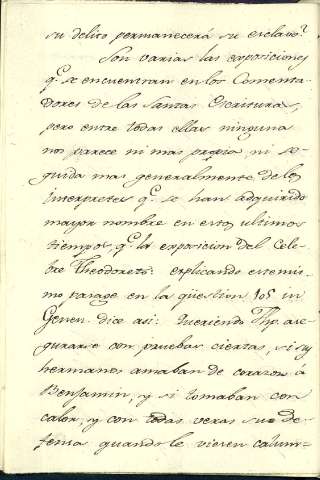 su delito permanecerá su esclavo?
Son varias las exposiciones
q.e se encuentran en los Comenta-
dores de las Santas Escrituras,
pero entre todas ellas ninguna
nos parece ni mas propia, ni se-
guida mas generalmente de los
interpretes q.e se han adquirido
mayor nombre en estos ultimos
tiempos, q.e la exposicion del Cele-
bre Theodoreto: explicando este mis-
mo parage en la question 105 in
Genen. dice asi: Queriendo Jhp. ase-
gurarse con pruebas ciertas, si sus
hermanos amaban de corazon á
Benjamin, y si tomaban con
calor, y con todas veras su de-
fensa quando le viesen calum-